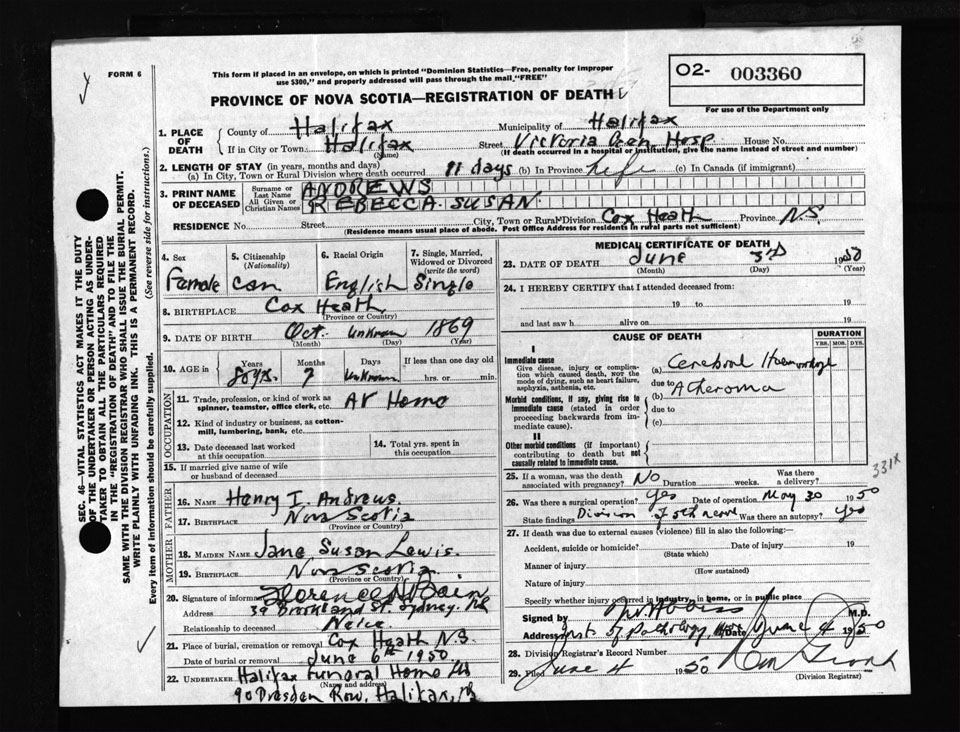 FORM 6
This form if placed in an envelope, on which is printed "Dominion Statistics—Free, penalty for improper
use $300," and properly addressed will pass through the mail, "FREE"
O2- 003360
For use of the Department only
PROVINCE OF NOVA SCOTIA—REGISTRATION OF DEATH
SEC. 46—VITAL STATISTICS ACT MAKES IT THE DUTY
OF THE UNDERTAKER OR PERSON ACTING AS UNDER-
TAKER TO OBTAIN ALL THE PARTICULARS REQUIRED
IN THE "REGISTRATION OF DEATH" AND TO FILE THE
SAME WITH THE DIVISION REGISTRAR WHO SHALL ISSUE THE BURIAL PERMIT.
WRITE PLAINLY WITH UNFADING INK. THIS IS A PERMANENT RECORD.
Every item of information should be carefully supplied. (See reverse side for instructions.)
1. PLACE OF DEATH County of Halifax Municipality of Halifax
If in City or Town Halifax (Name) Street Victoria Gen. Hosp House No.
(If death occurred in a hospital or institution, give the name instead of street and number)
2. LENGTH OF STAY (in years, months and days)
(a) In City, Town or Rural Division where death occurred 11 days (b) In Province Life (c) In Canada (if immigrant)
3. PRINT NAME OF DECEASED Surname or Last Name ANDREWS
All Given or Christian Names REBECCA SUSAN
RESIDENCE No. Street City, Town or Rural Division Cox Heath Province N.S
(Residence means usual place of abode. Post Office Address for residents in rural parts not sufficient)
4. Sex 5. Citizenship (Nationality) 6. Racial Origin 7. Single, Married, Widowed or Divorced (write the word)
Female Can English Single
8. BIRTHPLACE Cox Heath
(Province or Country)
9. DATE OF BIRTH Oct. Unknown 1869
(Month) (Day) (Year)
10. AGE in Years Months Days If less than one day old
80 yrs. 7 Unknown hrs. or min.
OCCUPATION
11. Trade, profession, or kind of work as
spinner, teamster, office clerk, etc. At Home
12. Kind of industry or business, as cotton-
mill, lumbering, bank, etc.
13. Date deceased last worked
at this occupation
14. Total yrs. spent in
this occupation
15. If married give name of wife
or husband of deceased
FATHER
16. NAME Henry T. Andrews.
17. BIRTHPLACE Nova Scotia
(Province or Country)
MOTHER
18. MAIDEN NAME Jane Susan Lewis.
19. BIRTHPLACE Nova Scotia
(Province or Country)
20. Signature of informant Florence Bain
Address 39 St. Sydney. NS
Relationship to deceased Neice
21. Place of burial, cremation or removal Cox Heath N.S.
Date of burial or removal June 6th 1950
22. UNDERTAKER Halifax Funeral Home
(Name and address)
90 Dresden Row, Halifax, NS
MEDICAL CERTIFICATE OF DEATH
23. DATE OF DEATH June 3rd 1950
(Month) (Day) (Year)
24. I HEREBY CERTIFY that I attended deceased from:
19 to 19
and last saw h alive on 19
CAUSE OF DEATH
DURATION
YRS. MOS. DYS.
I
Immediate cause
Give disease, injury or complica-
tion which caused death, NOT the
mode of dying, such as heart failure,
asphyxia, asthenia, etc.
(a) Cerebral Haemorrhage
due to
Morbid conditions, if any, giving rise to
immediate cause (stated in order
proceeding backwards from im-
mediate cause).
(b) Atheroma
due to
(c)
II
Other morbid conditions (if important)
contributing to death but not
causally related to immediate cause.
331X
25. If a woman, was the death
associated with pregnancy? No Duration weeks. Was there a delivery?
26. Was there a surgical operation? Yes Date of operation May 30 1950
State findings Division of 5th nerve Was there an autopsy? Yes
27. If death was due to external causes (violence) fill in also the following:
Accident, suicide or homicide? Date of injury 19
(State which)
Manner of injury
(How sustained)
Nature of injury
Specify whether injury occurred in industry, in home, or in public place
Signed by M.D.
Address Inst of Pathology, Date June 4 1950
28. Division Registrar's Record Number
29. Filed June 4 1950
(Division Registrar)